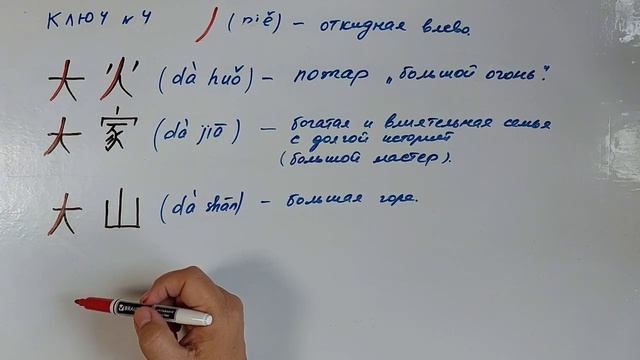 КЛЮЧ №4 丿 (piě) – откидная влево.
大 火 (dà huǒ) – пожар „большой огонь".
大 家 (dà jiā) – богатая и влиятельная семья
с долгой историей
(большой мастер).
大 山 (dà shān) – большая гора.
BRAUBERG